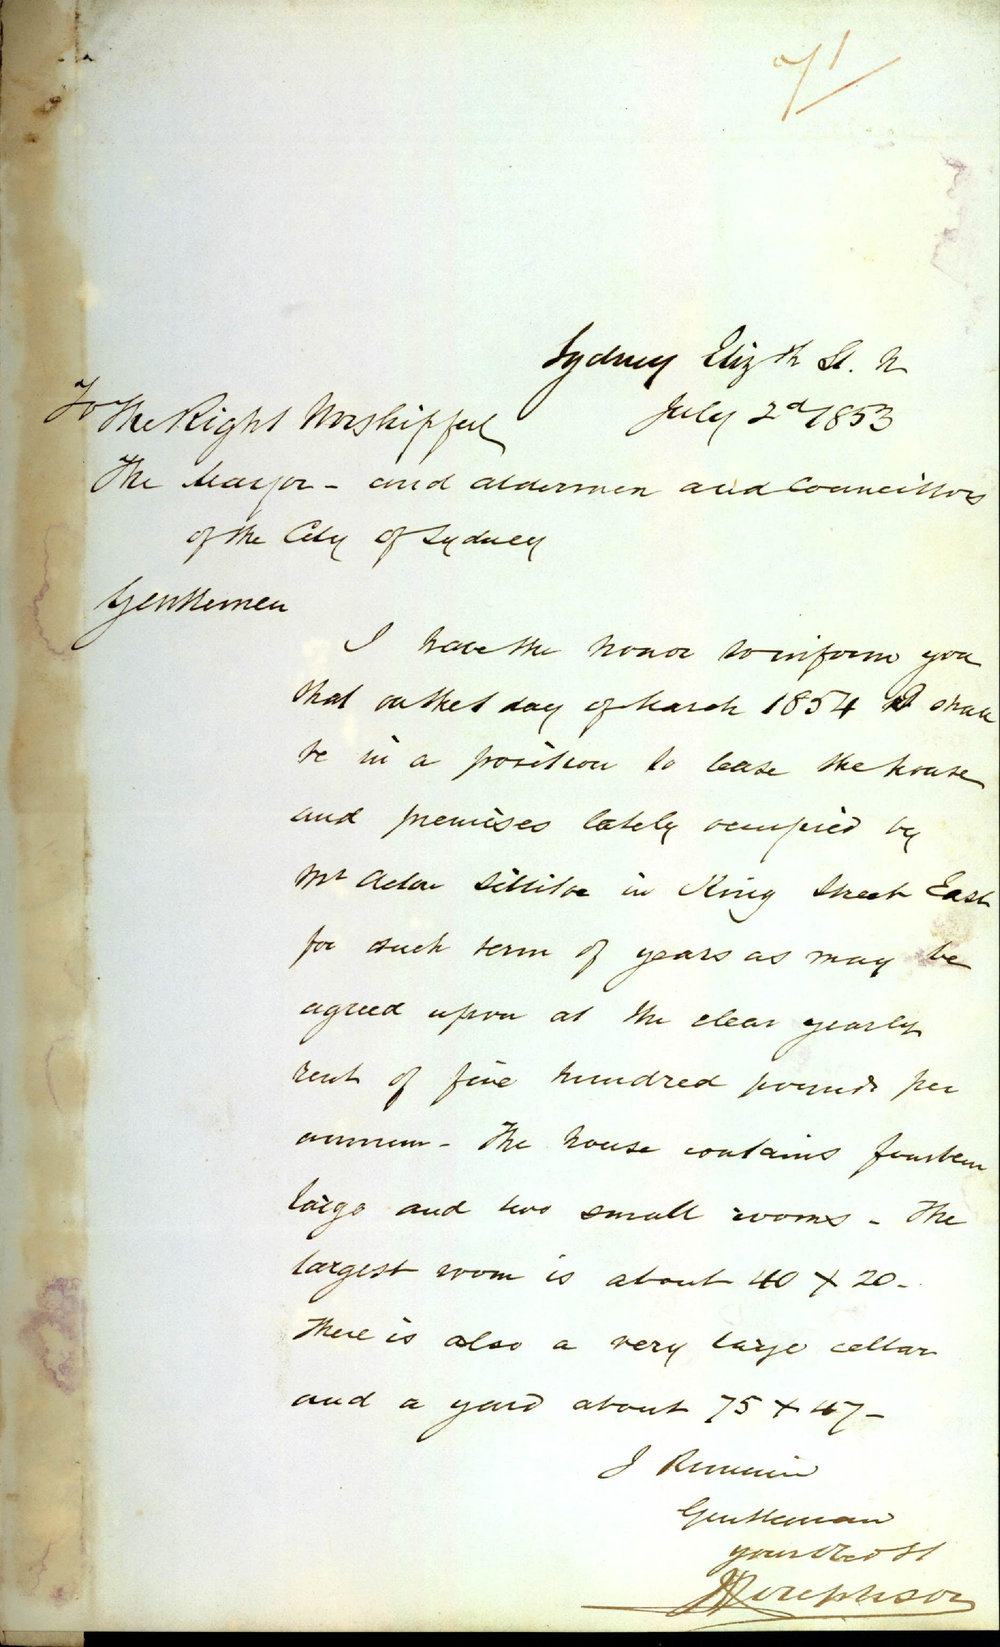 Sydney Elizth St. N
July 2d 1853
To The Right Worshipful
The Mayor - and Aldermen and Councillors
of the City of Sydney
Gentlemen
I have the honor to inform you
that on the 1 day of March 1854 I shall
be in a position to lease the house
and premises lately occupied by
Mr Acton Sillitoe in King Street East
for such term of years as may be
agreed upon at the clear yearly
rent of five hundred pounds per
annum - The house contains fourteen
large and two small rooms - The
largest room is about 40 x 20 -
There is also a very large cellar
and a yard about 75 x 47 -
I Remain
Gentleman
your Obed St
Josephson